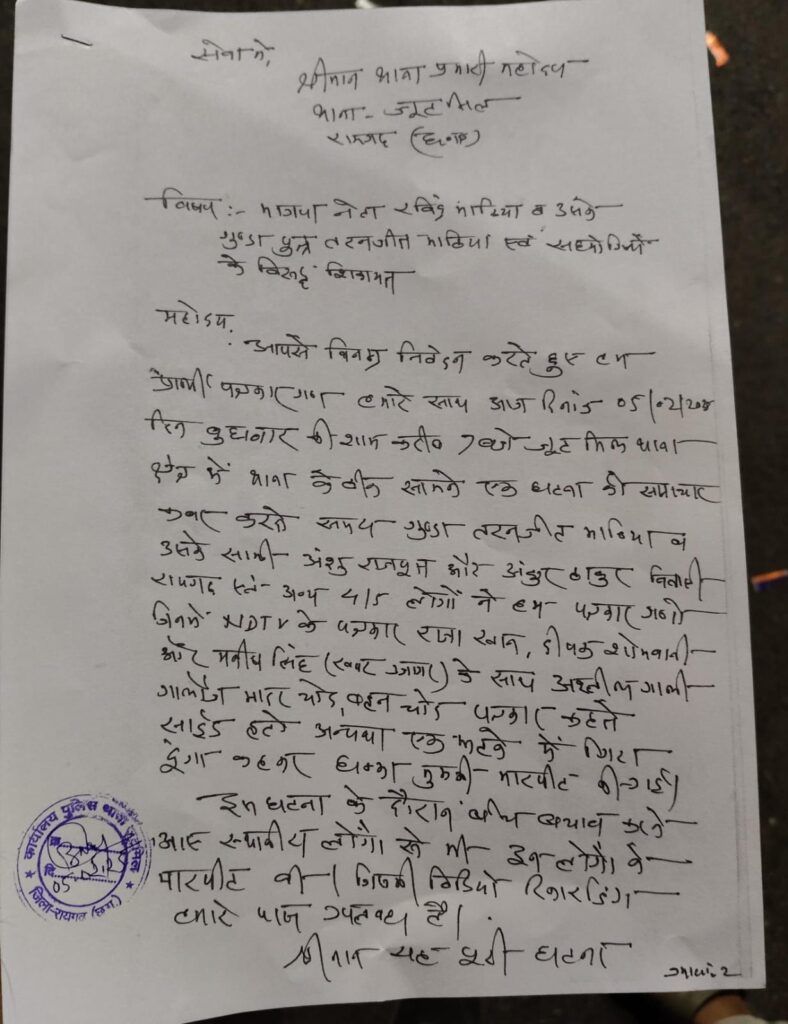 सेवा में,
श्रीमान थाना प्रभारी महोदय
थाना - जूटमिल
रायगढ़ (छ०ग०)
विषय :- भाजपा नेता रविंद्र भाटिया व उसके
गुण्डा पुत्र तरनजीत भाटिया एवं सहयोगियों
के विरूद्ध शिकायत
महोदय,
आपसे विनम्र निवेदन करते हुए हम
प्रार्थी पत्रकार गण हमारे साथ आज दिनांक 05/02/
दिन बुधवार की शाम करीब 7 बजे जूट मिल थाना
क्षेत्र में थाना के ठीक सामने एक घटना की समाचार
कवर करते समय गुण्डा तरनजीत भाटिया व
उसके साथी अंशु राजपूत और अंकुर ठाकुर निवासी
रायगढ़ एवं अन्य 4/5 लोगों ने हम पत्रकार गणो
जिनमें NDTV के पत्रकार राजा खान, दीपक शोभवानी
और मनीष सिंह (खबर उजागर) के साथ अश्लील गाली
गालौज मादर चोद, बहन चोद पत्रकार कहते
साईड हटो अन्यथा एक झटके में गिरा
दूंगा कहकर धक्का मुक्की मारपीट की गई।
इस घटना के दौरान बीच बचाव करने
आए स्थानीय लोगों से भी इन लोगों ने
मारपीट की। जिसकी विडियो रिकार्डिंग
हमारे पास उपलब्ध है।
श्रीमान यह पूरी घटना
2
कार्यालय पुलिस थाना जूटमिल
जिला-रायगढ़ (छ.ग.)